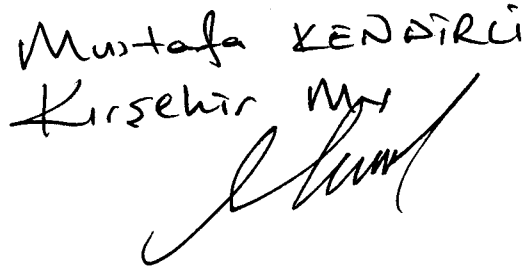 Mustafa KENDİRLİ
Kırşehir Mv